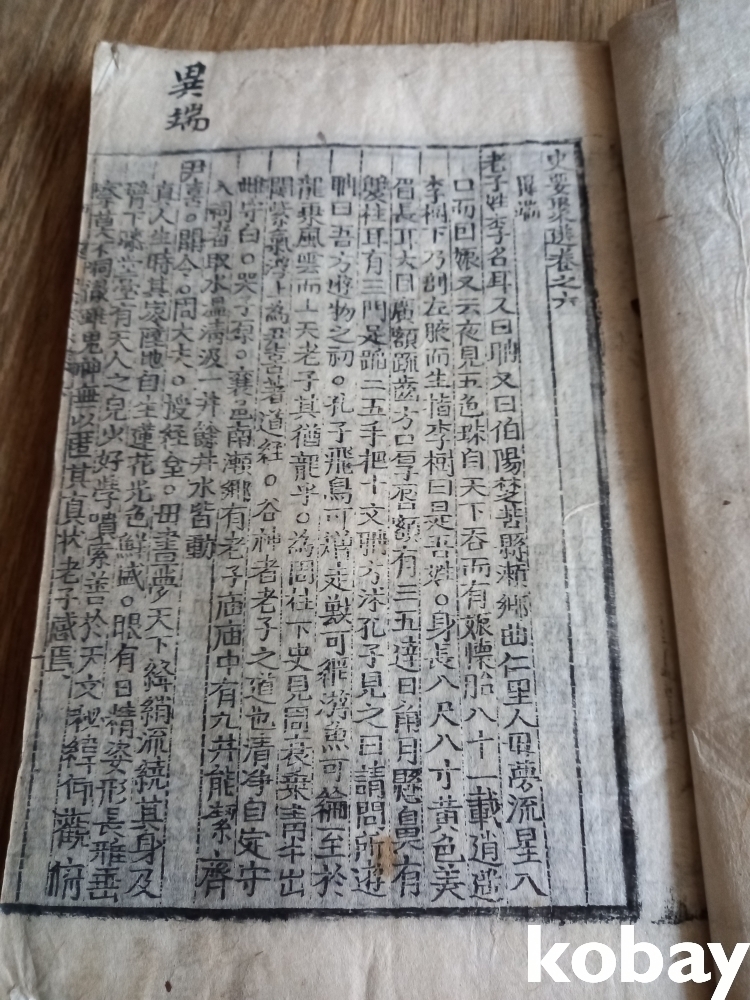 異端
史要聚選卷之六
異端
老子姓李名耳又曰聃又曰伯陽楚苦縣瀬鄉曲仁里人母夢流星入
口而曰娠又云夜見五色珠自天下吞而有娠懷胎八十一載逍遥
李樹下乃剖左腋而生指李樹曰是吾姓。身長八尺八寸黃色美
眉長耳大目廣額疏齒方口厚唇額有三五達日角月懸鼻有
雙柱耳有三門足蹈二五手把十文聃方沐孔子見之曰請問所遊
聃曰吾方游物之初。孔子飛鳥可矰走獸可網游魚可綸至於
龍乘風雲而上天老子其猶龍乎。為周柱下史見周衰乘青牛出
関紫氣浮上為尹喜著道經。谷神者老子之道也清净自定守
雌守白。襄邑南瀬鄉有老子庙庙中有九井能潔齊
入祠者取水温清汲一井餘井水皆動
尹喜。関令。周大夫。授經臺。母晝夢天下絳綃流繞其身及
真人生時其家陸地自生蓮花光色鮮盛。眼有日精姿形長雅垂
臂下膝堂堂有天人之皃少好学墳索善於天文秘緯仰觀俯
鬼神無以匿其真状老子感焉
kobay